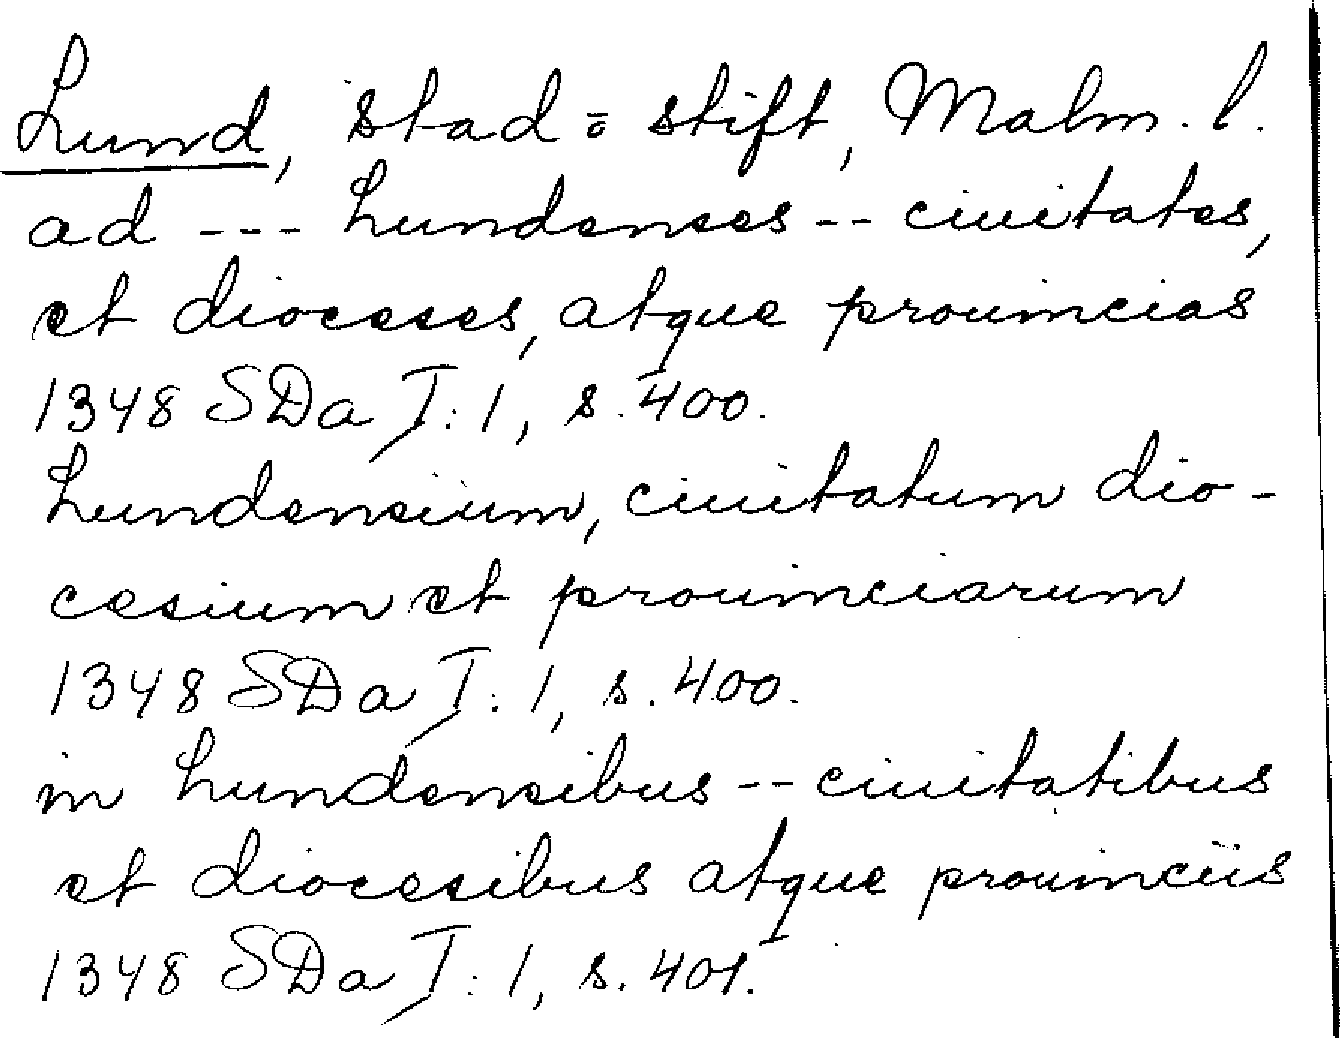 Lund, stad o stift, Malm. l.
ad --- Lundenses -- ciuitates,
et dioceses, atque prouincias
1348 SDa I:1, s. 400.
Lundensium, ciuitatum dio-
cesium et prouinciarum
1348 SDa I:1, s. 400.
in Lundensibus -- ciuitatibus
et diocesibus atque prouinciis
1348 SDa I:1, s. 401.